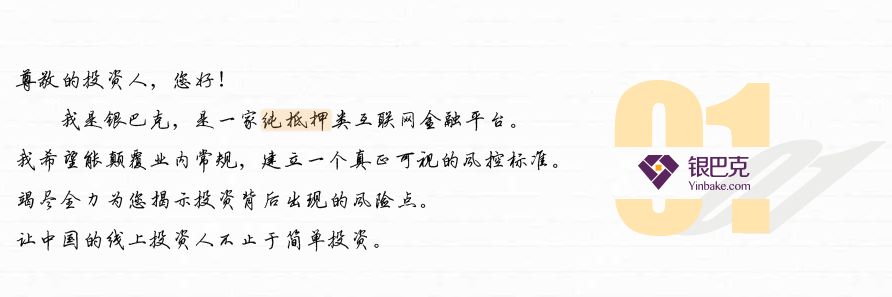 尊敬的投资人，您好！
我是银巴克，是一家纯抵押类互联网金融平台。
我希望能颠覆业内常规，建立一个真正可视的风控标准。
竭尽全力为您揭示投资背后出现的风险点。
让中国的线上投资人不止于简单投资。
01
01
银巴克
Yinbake.com